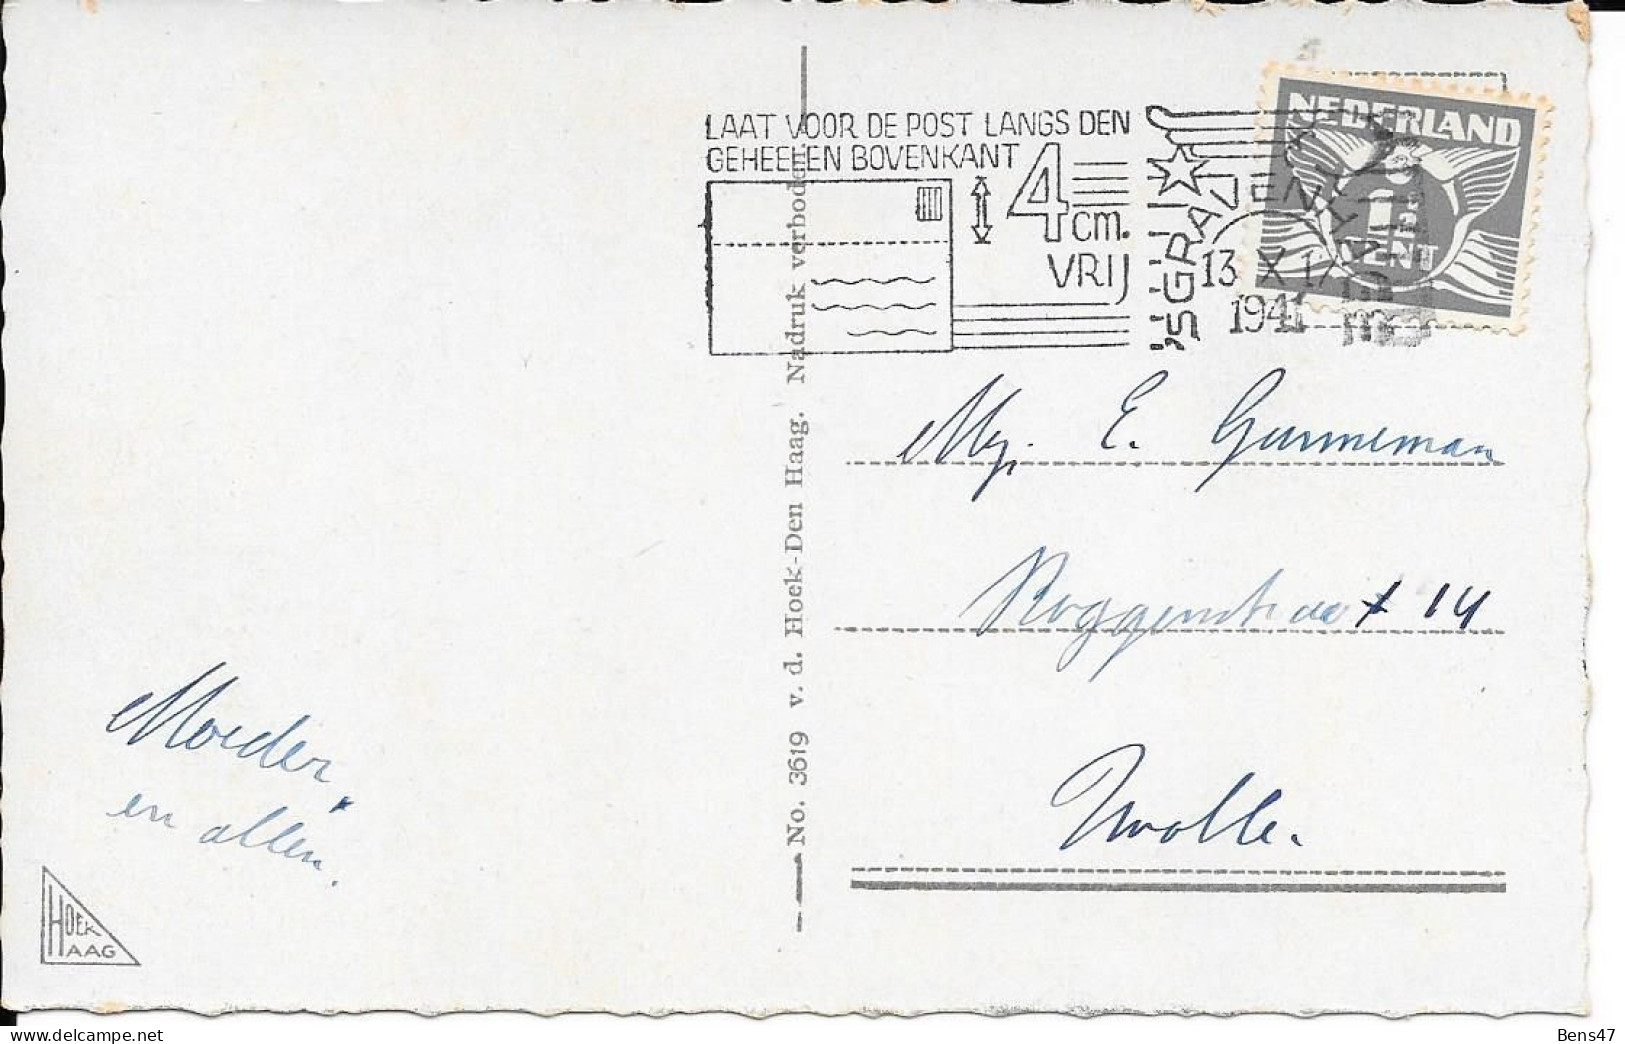 LAAT VOOR DE POST LANGS DEN
GEHEELEN BOVENKANT
4
cm.
VRIJ
'SGRAVENHAGE
13 X 17
1941
NEDERLAND
1
CENT
Mej. E. Gunneman
Roggenstraat 14
Zwolle.
Moeder,
en allen.
No. 3619 v. d. Hoek-Den Haag. Nadruk verboden.
HOEK
HAAG
Bens47